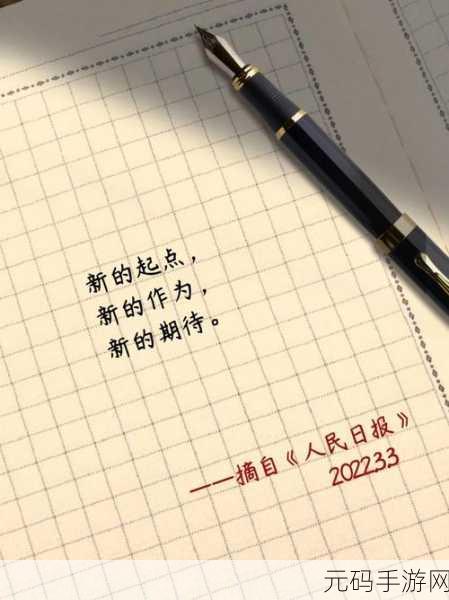 新的起点，
新的作为，
新的期待。
——摘自《人民日报》
202233
元码手游网